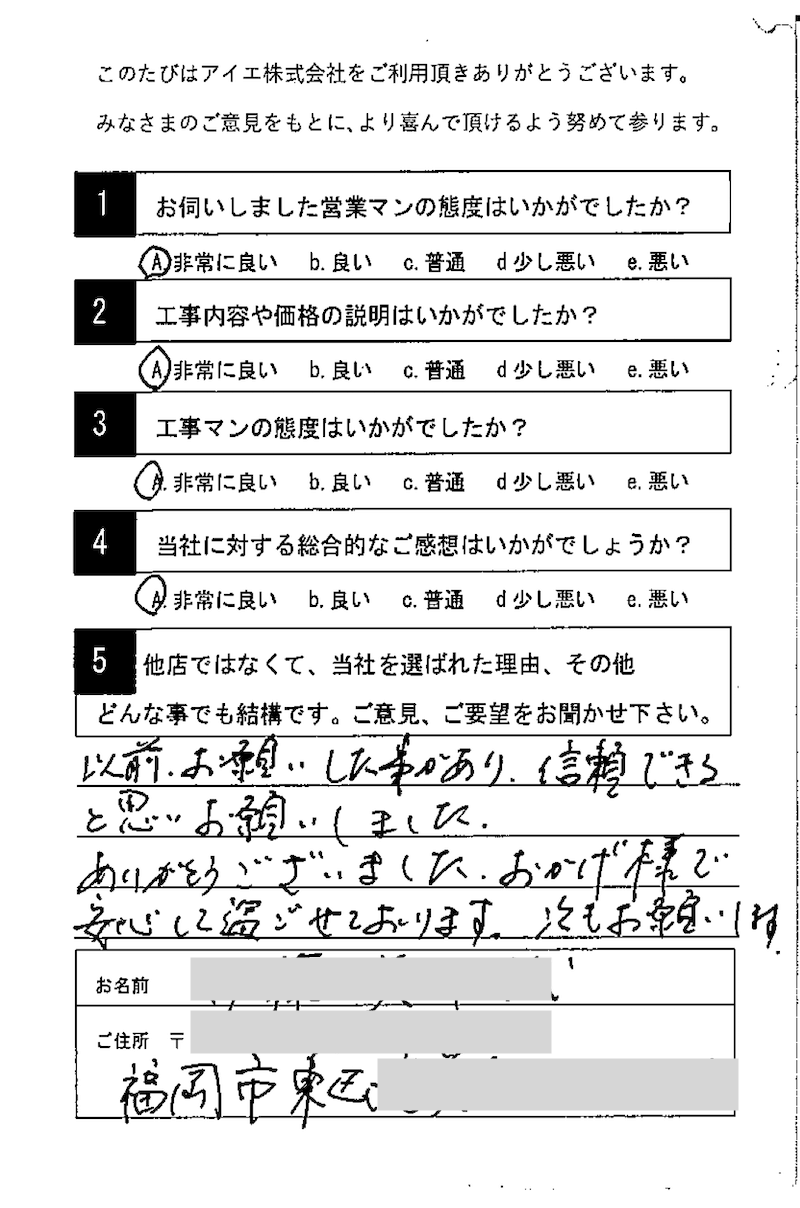 このたびはアイエ株式会社をご利用頂きありがとうございます。
みなさまのご意見をもとに、より喜んで頂けるよう努めて参ります。
1 お伺いしました営業マンの態度はいかがでしたか？
A 非常に良い b. 良い c. 普通 d 少し悪い e. 悪い
2 工事内容や価格の説明はいかがでしたか？
A 非常に良い b. 良い c. 普通 d 少し悪い e. 悪い
3 工事マンの態度はいかがでしたか？
A. 非常に良い b. 良い c. 普通 d 少し悪い e. 悪い
4 当社に対する総合的なご感想はいかがでしょうか？
A. 非常に良い b. 良い c. 普通 d 少し悪い e. 悪い
5 他店ではなくて、当社を選ばれた理由、その他
どんな事でも結構です。ご意見、ご要望をお聞かせ下さい。
以前、お願いした事があり、信頼できる
と思いお願いしました。
ありがとうございました。おかげ様で
安心して過ごせております。次もお願いします。
お名前
ご住所 〒
福岡市東区